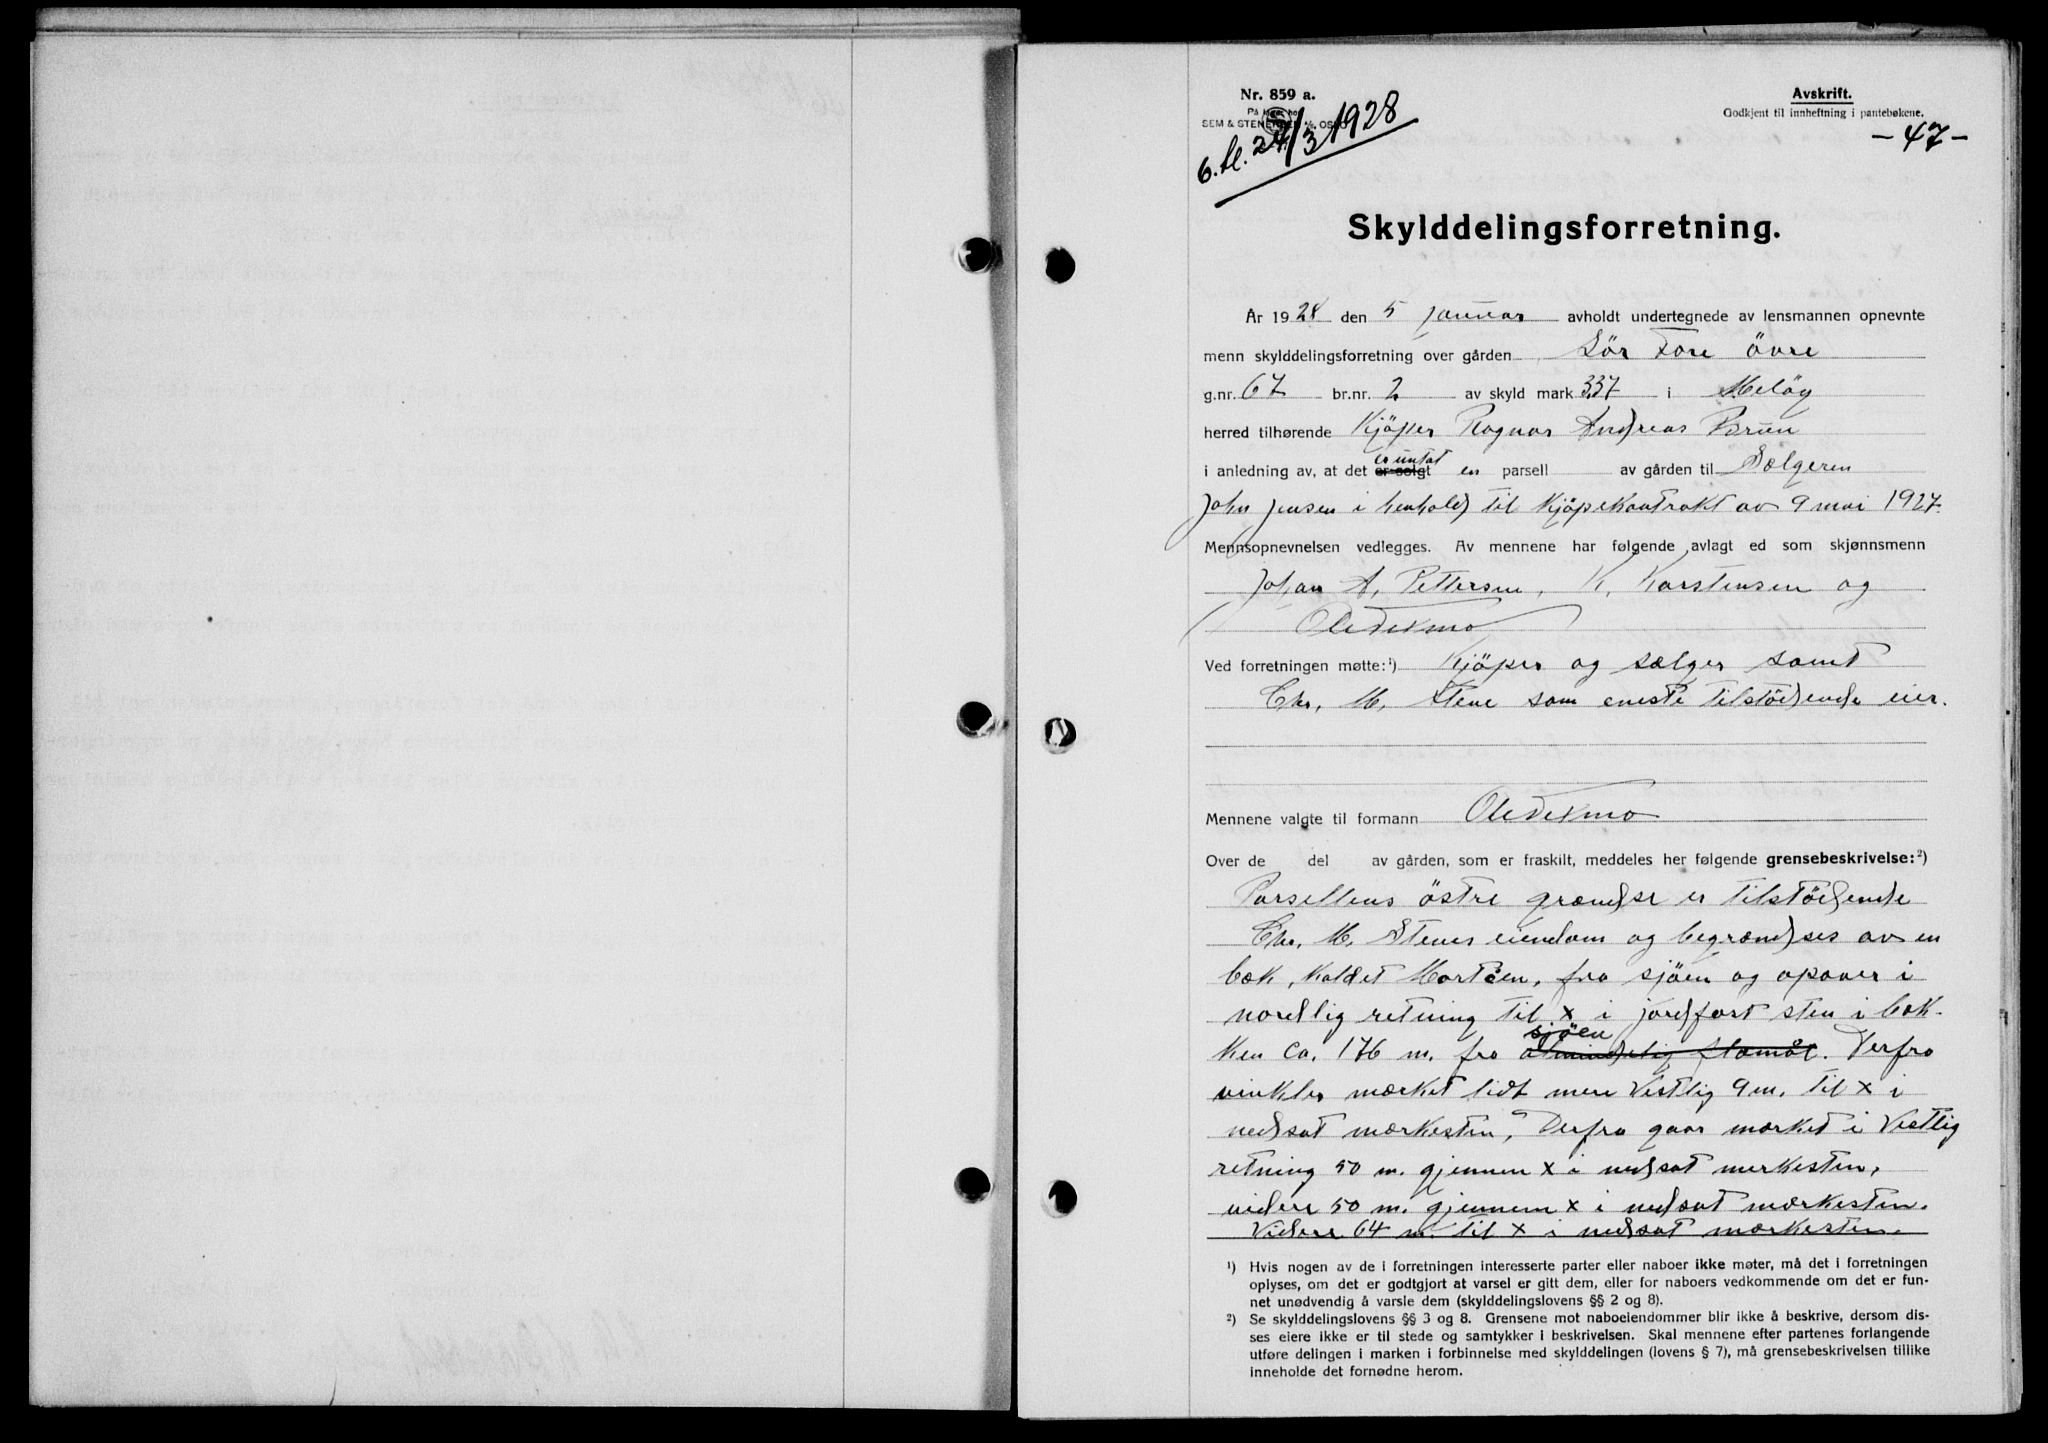 Nr. 859 a.
Avskrift.
SEM & STENERSEN A/S, OSLO
Godkjent til innheftning i pantebøkene.
6. bl. 24/3 1928
- 47 -
Skylddelingsforretning.
År 1928 den 5 januar avholdt undertegnede av lensmannen opnevnte
menn skylddelingsforretning over gården Sör Fore övre
g.nr. 67 br.nr. 2 av skyld mark 3.37 i Melöy
herred tilhørende Kjöper Ragnar Andreas Bruun
i anledning av, at det er solgt er untat en parsell av gården til Sælgeren
John Jensen i henhold til Kjöpekontrakt av 9 mai 1927.
Mennsopnevnelsen vedlegges. Av mennene har følgende avlagt ed som skjønnsmenn
Johan A. Pettersen, K. Karstensen og
Ole Dexmo
Ved forretningen møtte: ¹) Kjöper og sælger samt
Chr. M. Stene som eneste tilstödende eier.
Mennene valgte til formann Ole Dexmo
Over de del av gården, som er fraskilt, meddeles her følgende grensebeskrivelse: ²)
Parsellens östre grændse er tilstödende
Chr. M. Stenes eiendom og begrændses av en
bæk, kaldet Martåen, fra sjöen og opover i
nordlig retning til x i jordfast sten i bæk-
sjöen
ken ca. 176 m. fra almindelig flomål. Derfra
vinkler mærket lidt mere Vestlig 9 m. til x i
nedsat mærkesten, Derfra gaar mærket i Vestlig
retning 50 m. gjennem x i nedsat merkesten,
videre 50 m. gjennem x i nedsat mærkesten.
Videre 64 m. til x i nedsat mærkesten.
¹) Hvis nogen av de i forretningen interesserte parter eller naboer ikke møter, må det i forretningen
oplyses, om det er godtgjort at varsel er gitt dem, eller for naboers vedkommende om det er fun-
net unødvendig å varsle dem (skylddelingslovens §§ 2 og 8).
²) Se skylddelingslovens §§ 3 og 8. Grensene mot naboeiendommer blir ikke å beskrive, dersom dis-
ses eiere ikke er til stede og samtykker i beskrivelsen. Skal mennene efter partenes forlangende
utføre delingen i marken i forbinnelse med skylddelingen (lovens § 7), må grensebeskrivelsen tillike
inneholde det fornødne herom.